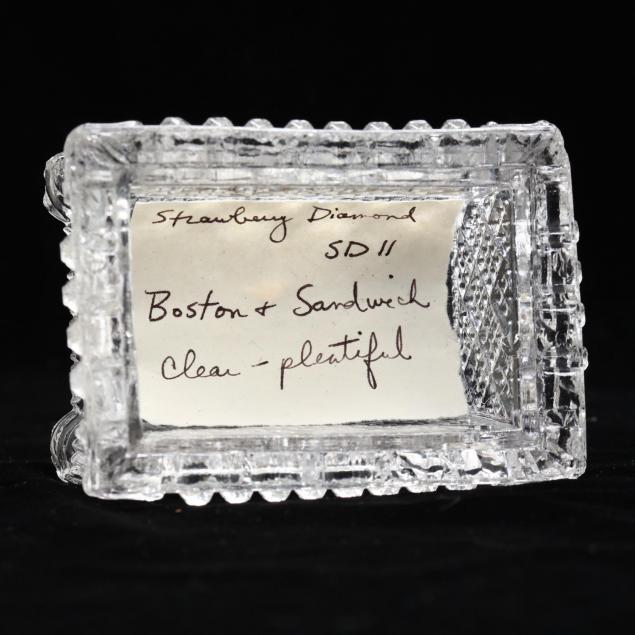 Strawberry Diamond
SD 11
Boston & Sandwich
Clear - plentiful